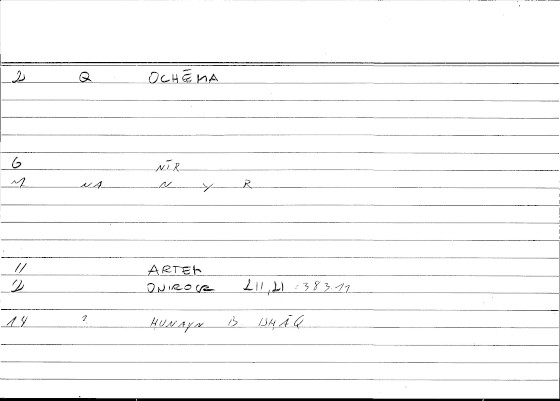 2 Q OCHĒMA
6 NĪR
M NA N Y R
11 ARTEM
2 ONIROCR 211,21 = 383.11
14 ? HUNAYN B ISHĀQ